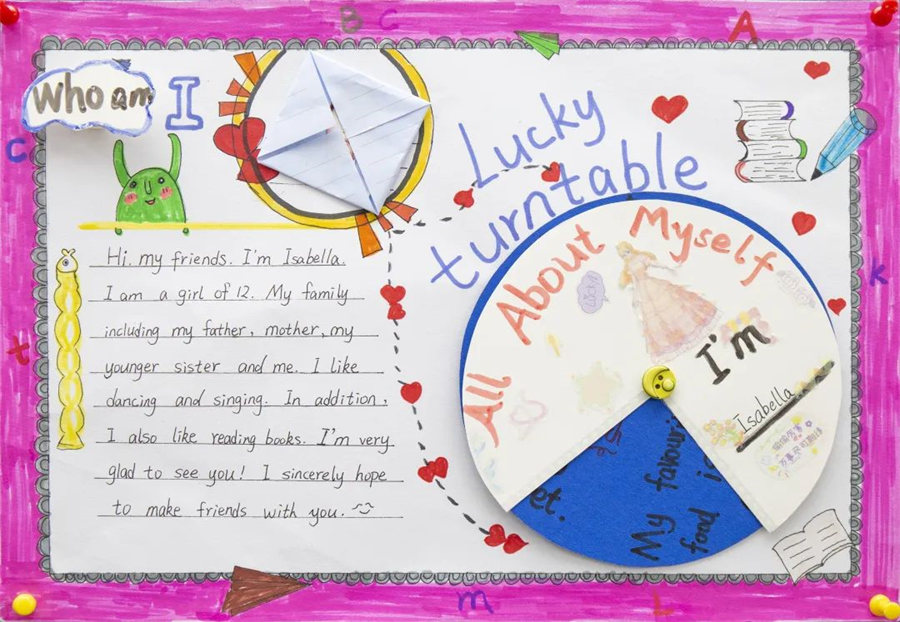 B C
A
Who am I
Lucky
turntable
C
t
k
m
L
Hi. my friends. I'm Isabella.
I am a girl of 12. My family
including my father, mother, my
younger sister and me. I like
dancing and singing. In addition,
I also like reading books. I'm very
glad to see you! I sincerely hope
to make friends with you.
All About Myself
Lucky
I'm
Isabella
et.
My favouri
food is